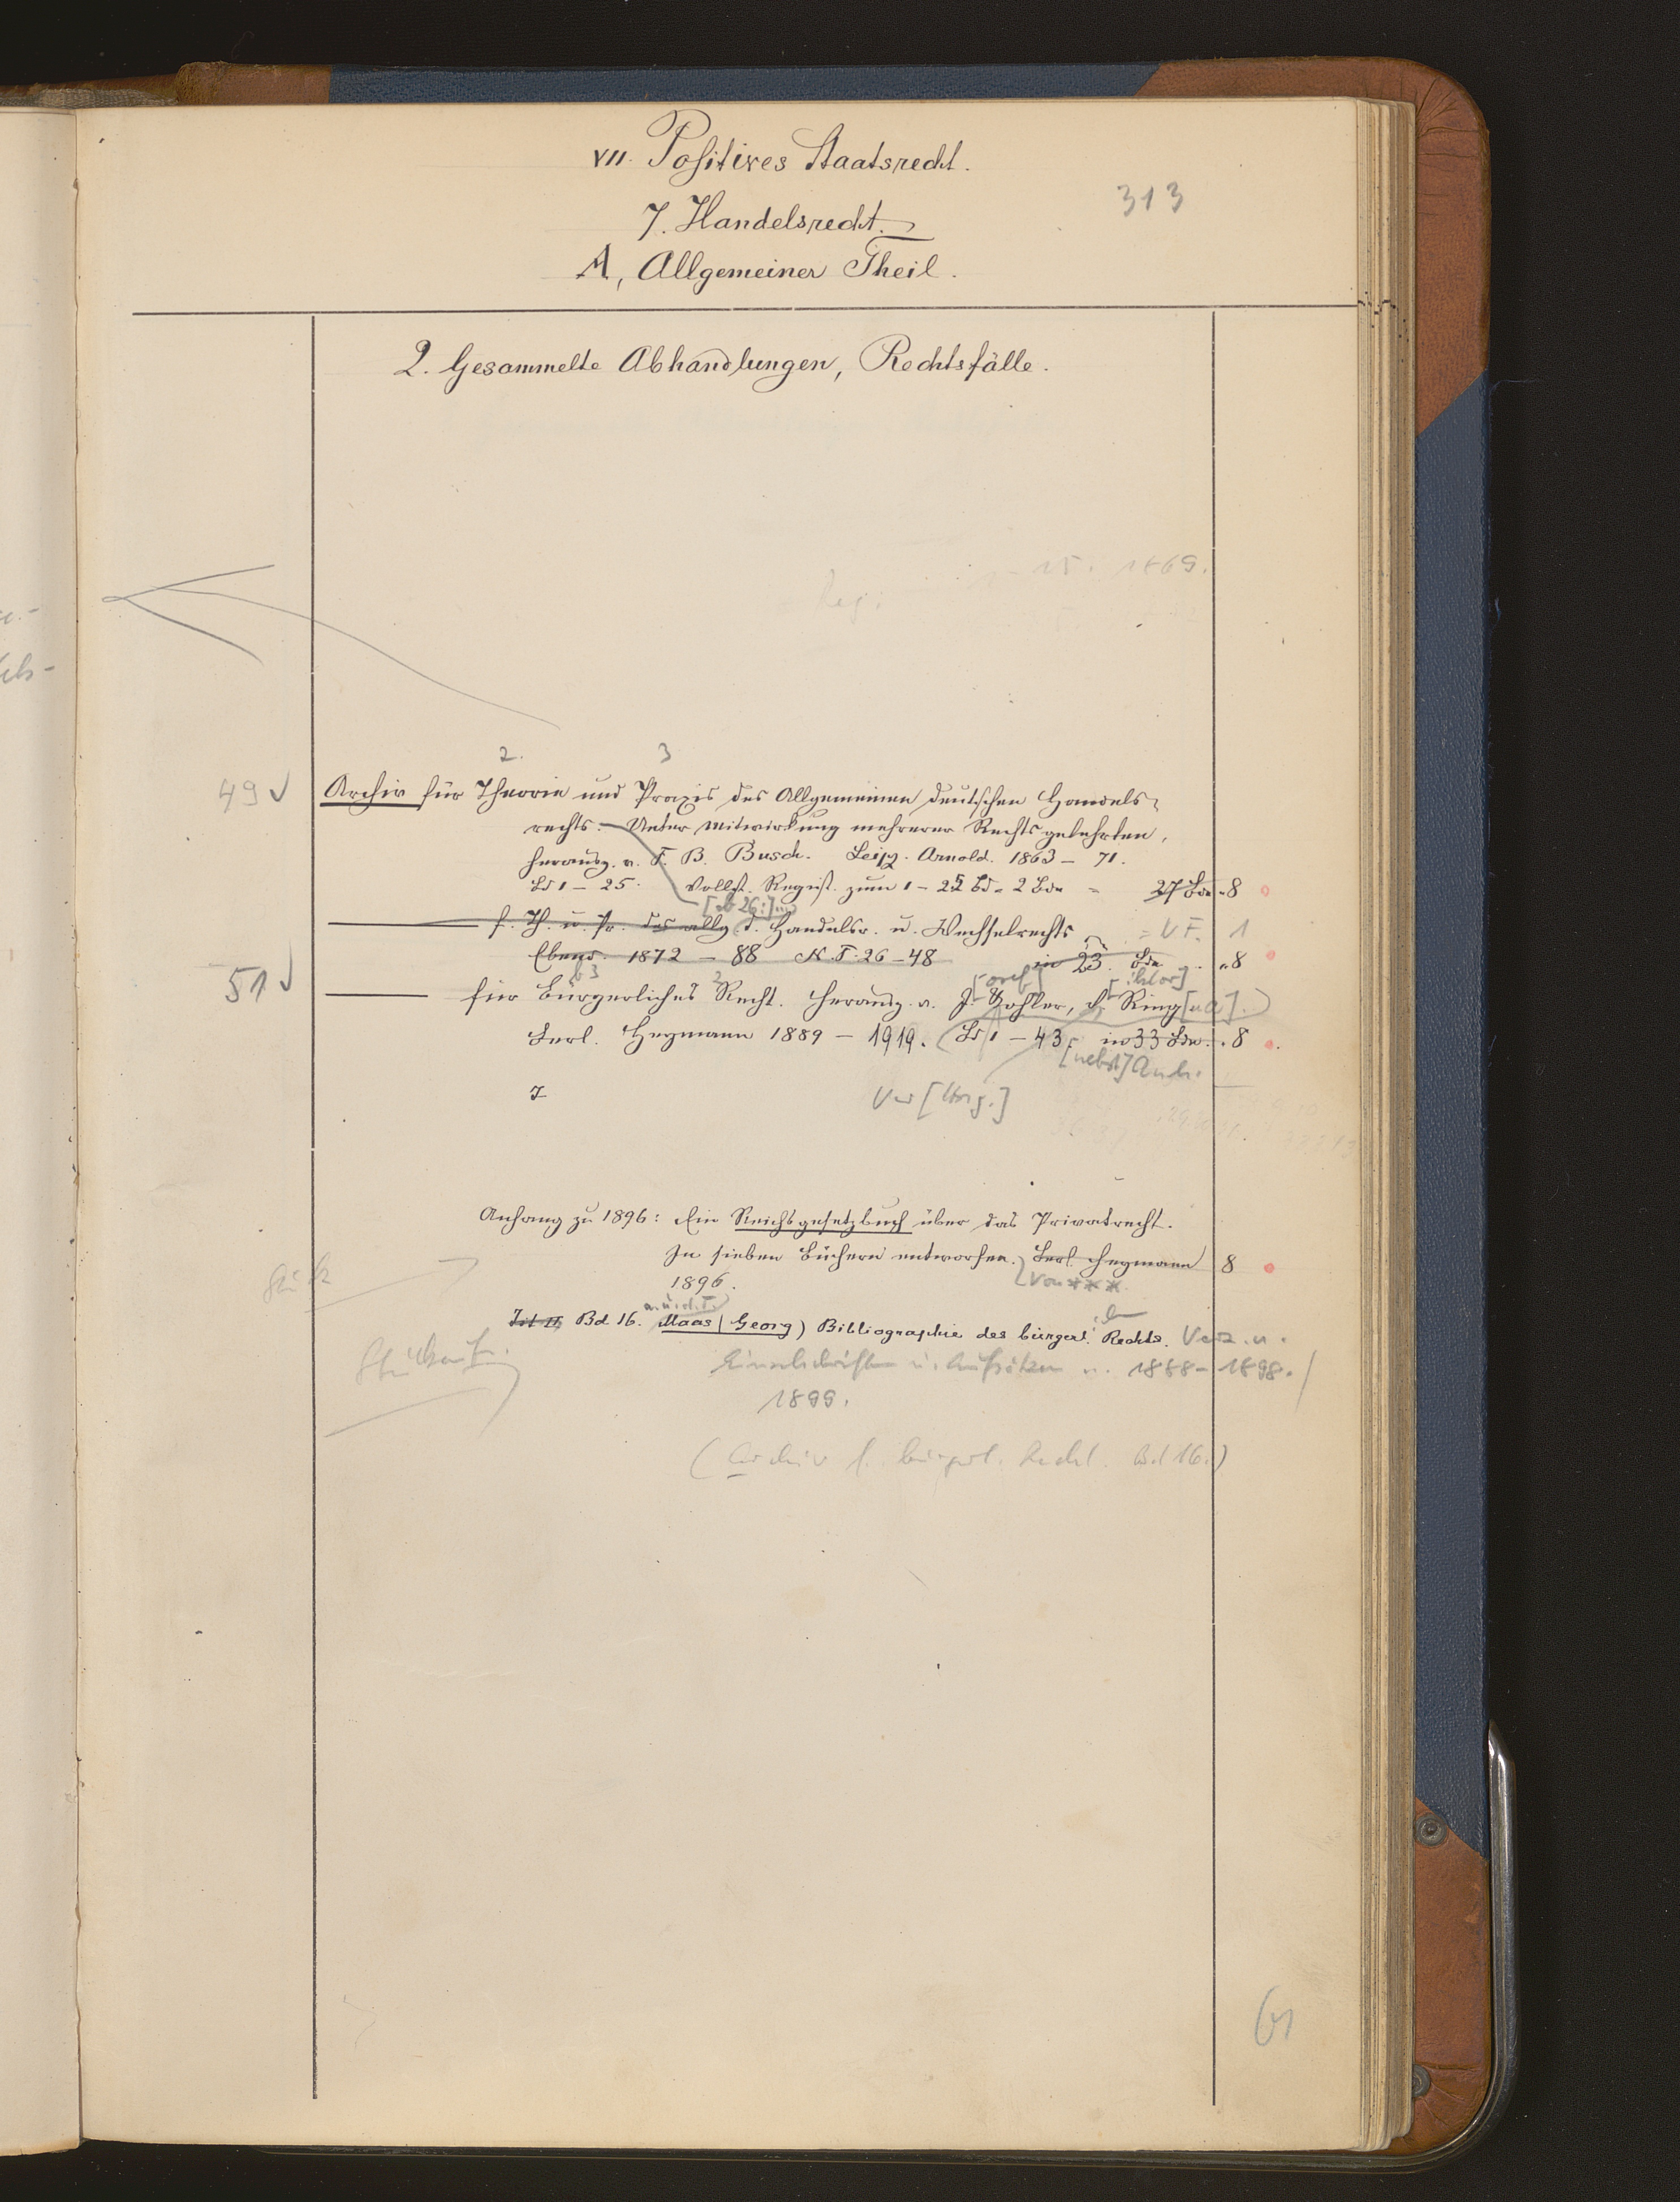 VII. Positives Staatsrecht.
313
7. Handelsrecht.
A, Allgemeiner Theil.
2. Gesammelte Abhandlungen, Rechtsfälle.
15. 1869.
Reg.
2. 3
49 Archiv für Theorie und Praxis des Allgemeinen deutschen Handels-
rechts. Unter Mitwirkung mehrerer Rechtsgelehrten,
herausg. v. F. B. Busch. Leipz. Arnold. 1863 – 71.
Bd 1 – 25. Vollst. Regist. zum 1 – 25 Bd. 2 Bde = 27 Bde 8
[ab 26:]
f. Th. u. Pr. des allg. d. Handelsr. u. Wechselrechts 1
Ebend. 1872 – 88 N. F. 26 – 48 in 23. Bde 8
51 für Bürgerliches Recht. Herausg. v. J. [osef] Kohler, V. [iktor] Ring [u.a.]
Berl. Heymann 1889 – 1919. Bd 1 – 43. in 33 Bde. 8
[nebst] Anh.
Anhang zu 1896: Ein Reichsgesetzbuch über das Privatrecht.
In sieben Büchern entworfen. Berl. Heymann 8
1896. Von ***
Bd 16. Maas (Georg) Bibliographie des bürgerl. Rechts. Verz. v.
Einzelschriften u. Aufsätzen v. 1888 – 1898.
1899.
(Archiv f. bürgerl. Recht. Bd 16.)